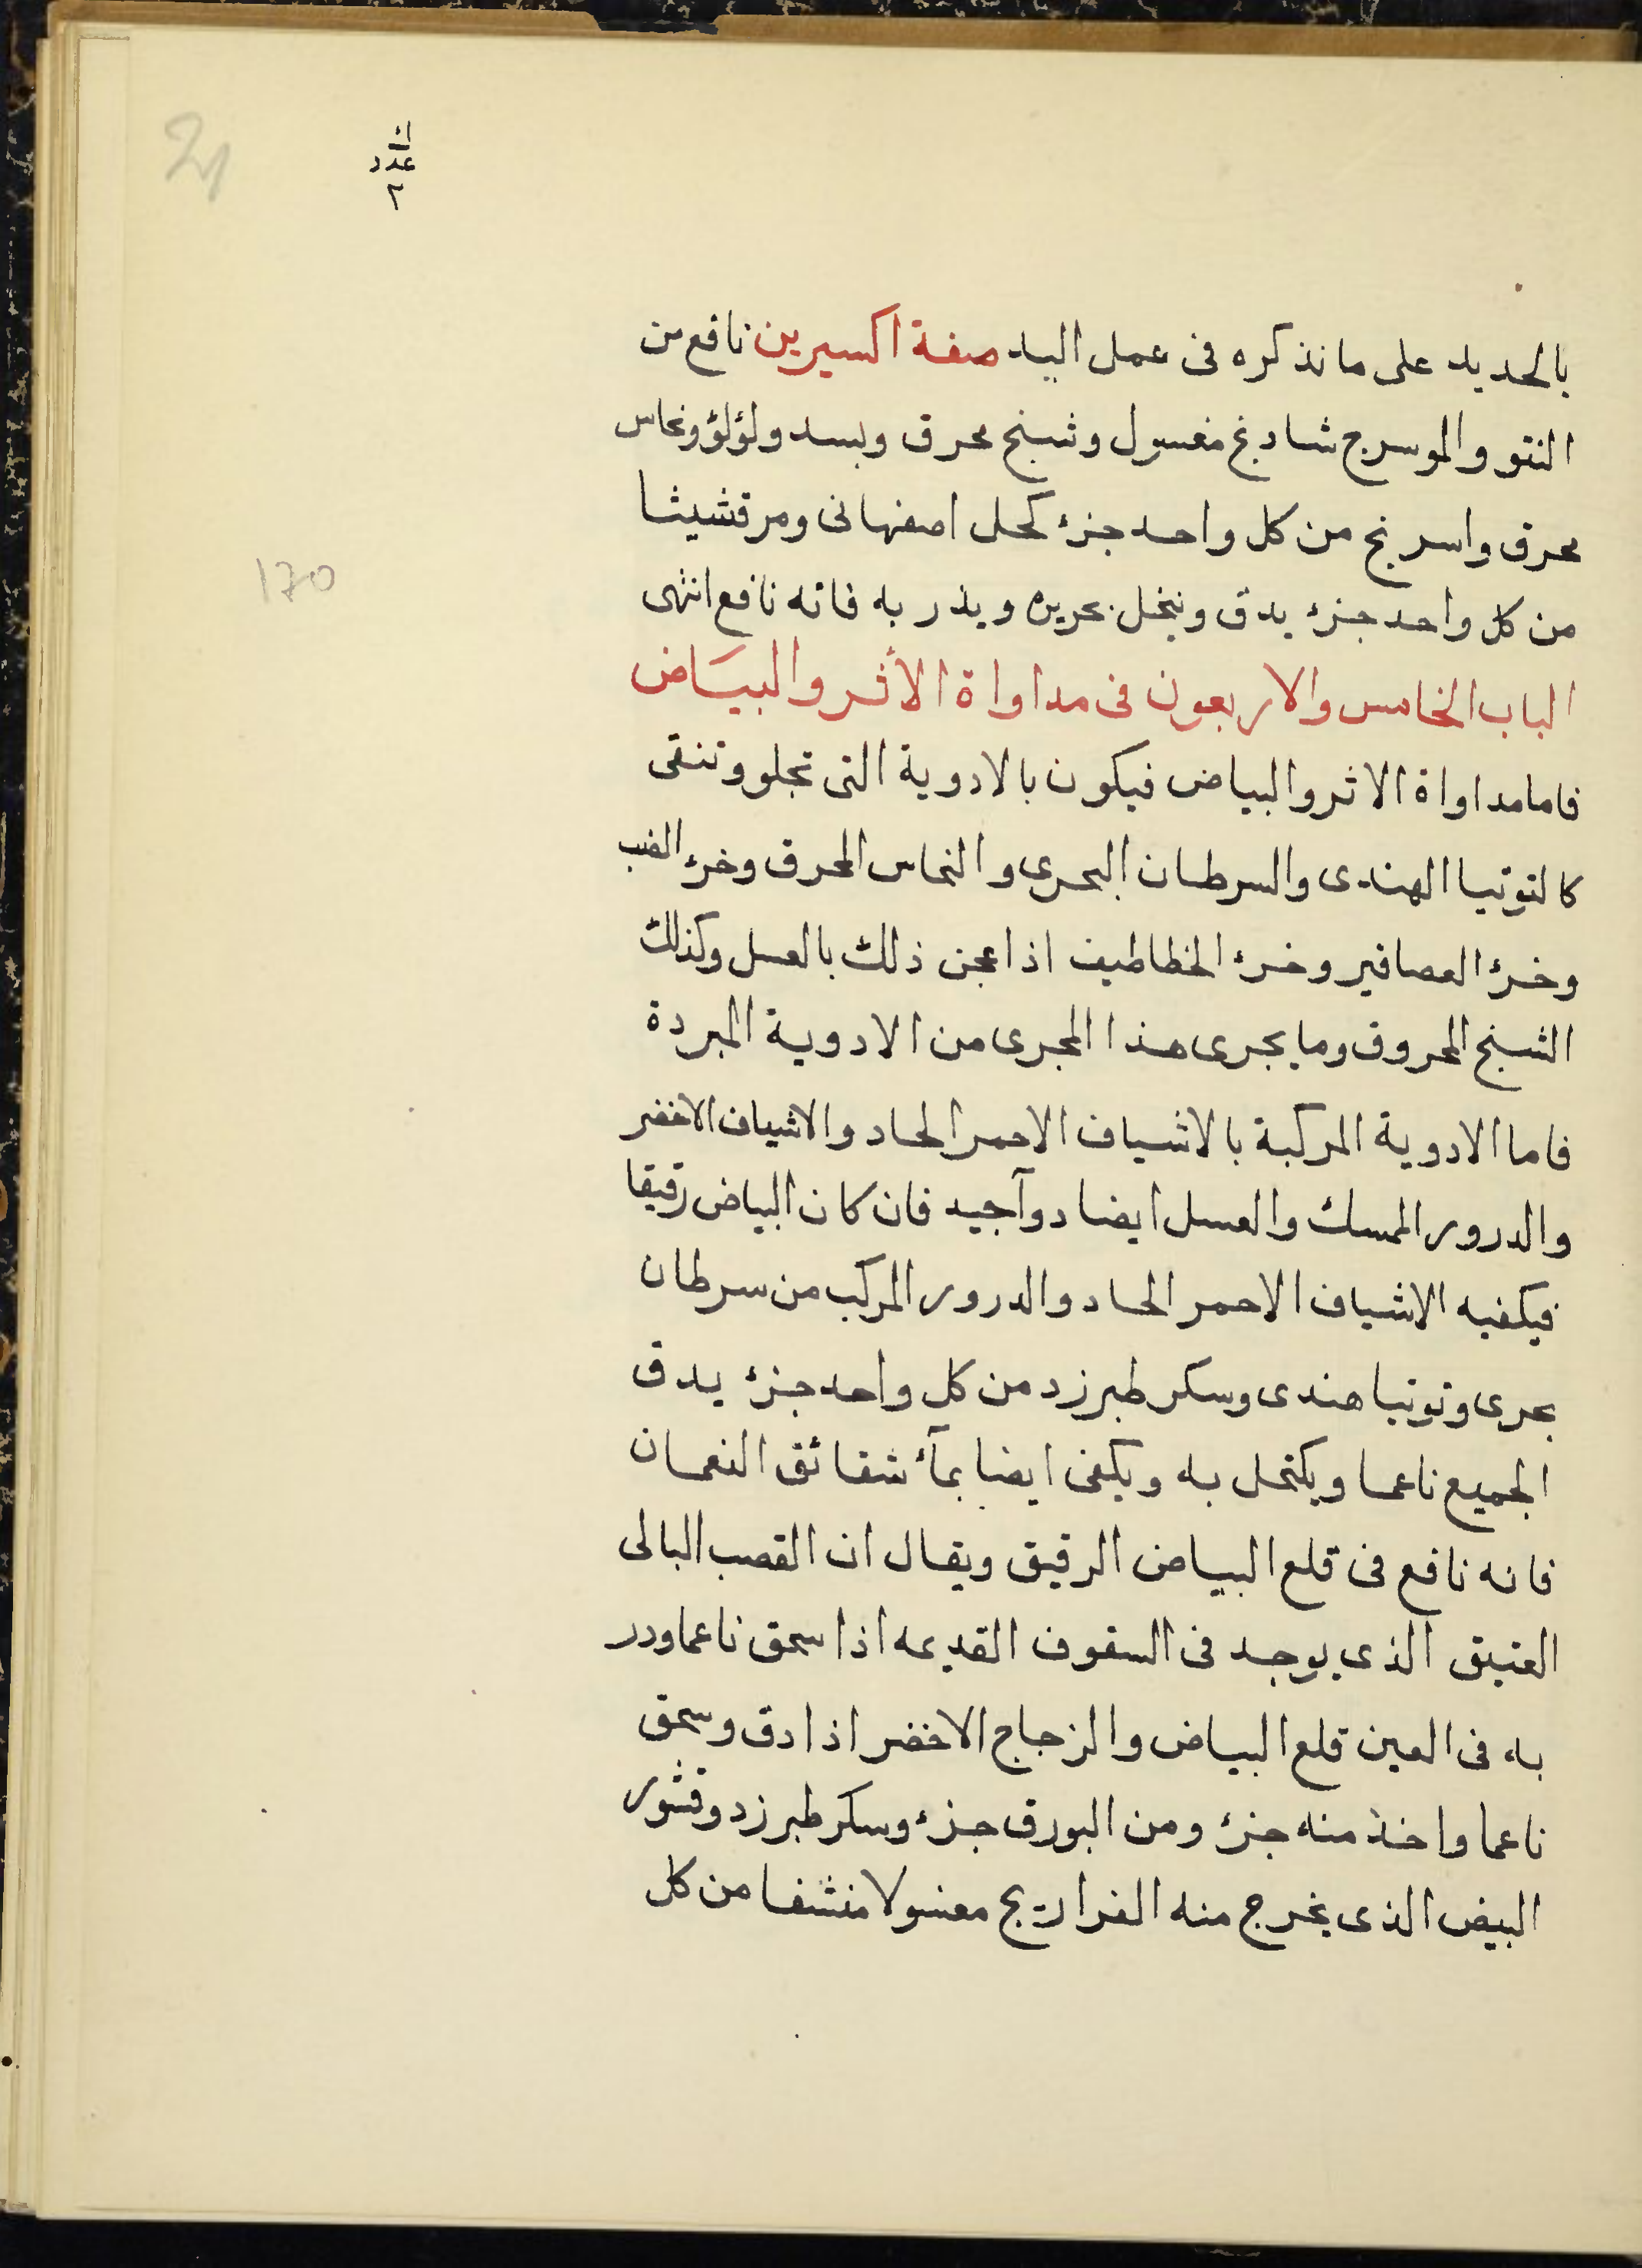 عدد
٢
2
170
بالحديد على ما نذكره فى عمل اليد صفة اكسيرين نافع من
النتو والموسرج شادنج مغسول وشبنج محرق وبسد ولؤلؤ ونحاس
محرق واسرنج من كل واحد جزء كحل اصفهانى ومرقشيثا
من كل واحد جزء يدق وينخل بحريره ويذر به فانه نافع انتهى
الباب الخامس والاربعون فى مداواة الأثر والبيَاض
فاما مداواة الاثر والبياض فيكون بالادوية التى تجلو وتنقى
كالتوتيا الهندى والسرطان البحرى والنحاس المحرق وخرء الضب
وخرء العصافير وخرء الخطاطيف اذا عجن ذلك بالعسل وكذلك
الشبنج المحروق وما يجرى هذا المجرى من الادوية المبردة
فاما الادوية المركبة بالاشياف الاحمر الحاد والاشياف الاخضر
والدرور الممسك والعسل ايضا دوآ جيد فان كان البياض رقيقا
فيكفيه الاشياف الاحمر الحاد والدرور المركب من سرطان
بحرى وتوتيا هندى وسكر طبرزد من كل واحد جزء يدق
الجميع ناعما ويكتحل به ويكفى ايضا بمآء شقائق النعمان
فانه نافع فى قلع البياض الرقيق ويقال ان القصب البالى
العتيق الذى يوجد فى السقوف القديمه اذا سحق ناعما ودر
به فى العين قلع البياض والزجاج الاخضر اذا دق وسحق
ناعما واخذ منه جزء ومن البورق جزء وسكر طبرزد وقشور
البيض الذى يخرج منه الفراريج مغسولا منشفا من كل